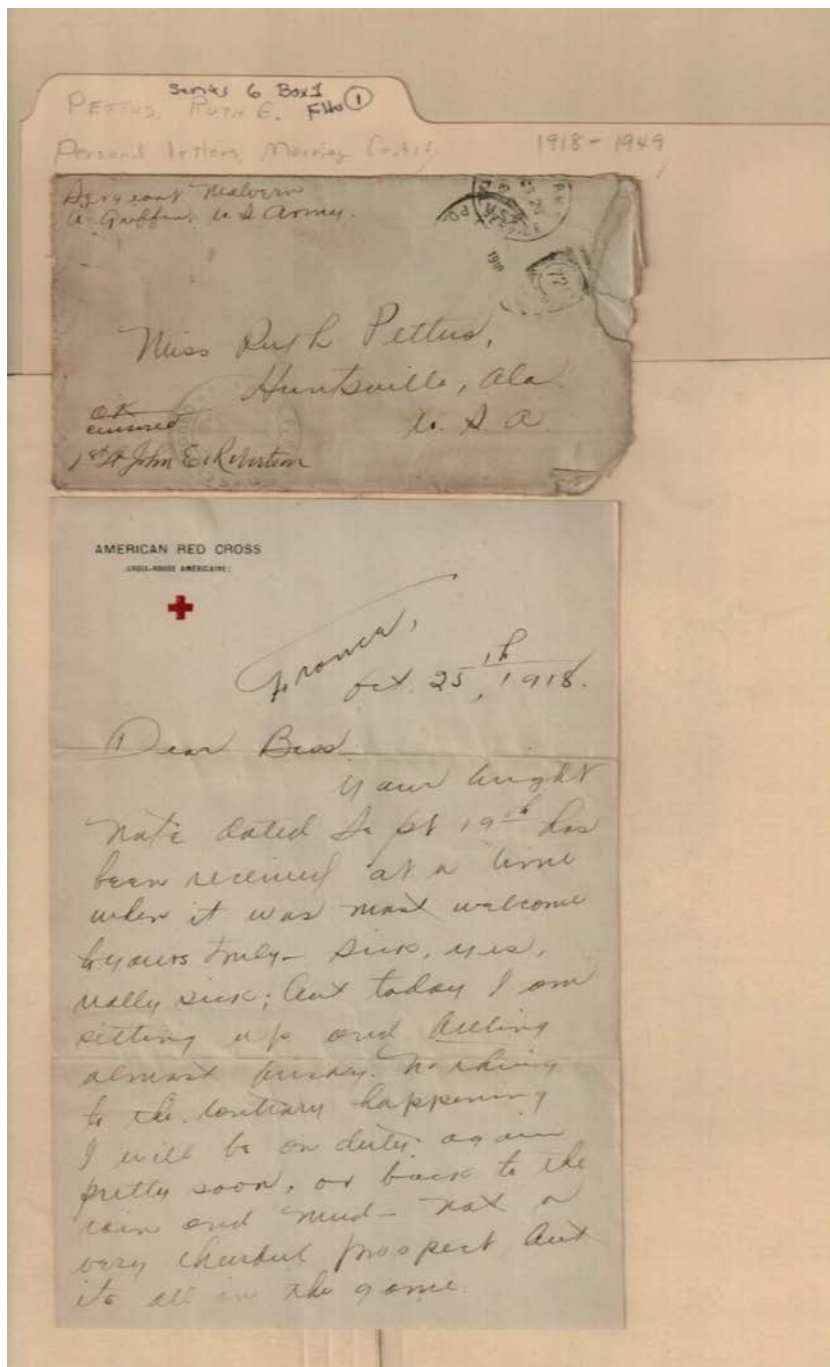 Series 6 Box 1
PETTUS, RUTH E. File 1
Personal letters, Marriage Certif.
1918-1949
Sergeant Malvern
A. Griffin, U S Army.
1918
Miss Ruth Pettus,
Huntsville, Ala.
U. S. A.
OK
censored
1st Lt John E. Robertson
AMERICAN RED CROSS
(CROIX-ROUGE AMÉRICAINE)
France,
Oct. 25th, 1918.
Dear Bess
Your bright
note dated Sept 19th has
been received at a time
when it was most welcome
to yours truly- Sick, yes,
really sick; but today I am
sitting up and feeling
almost frisky. Nothing
to the contrary happening
I will be on duty again
pretty soon, or back to the
rain and mud- not a
very cheerful prospect but
its all in the game.